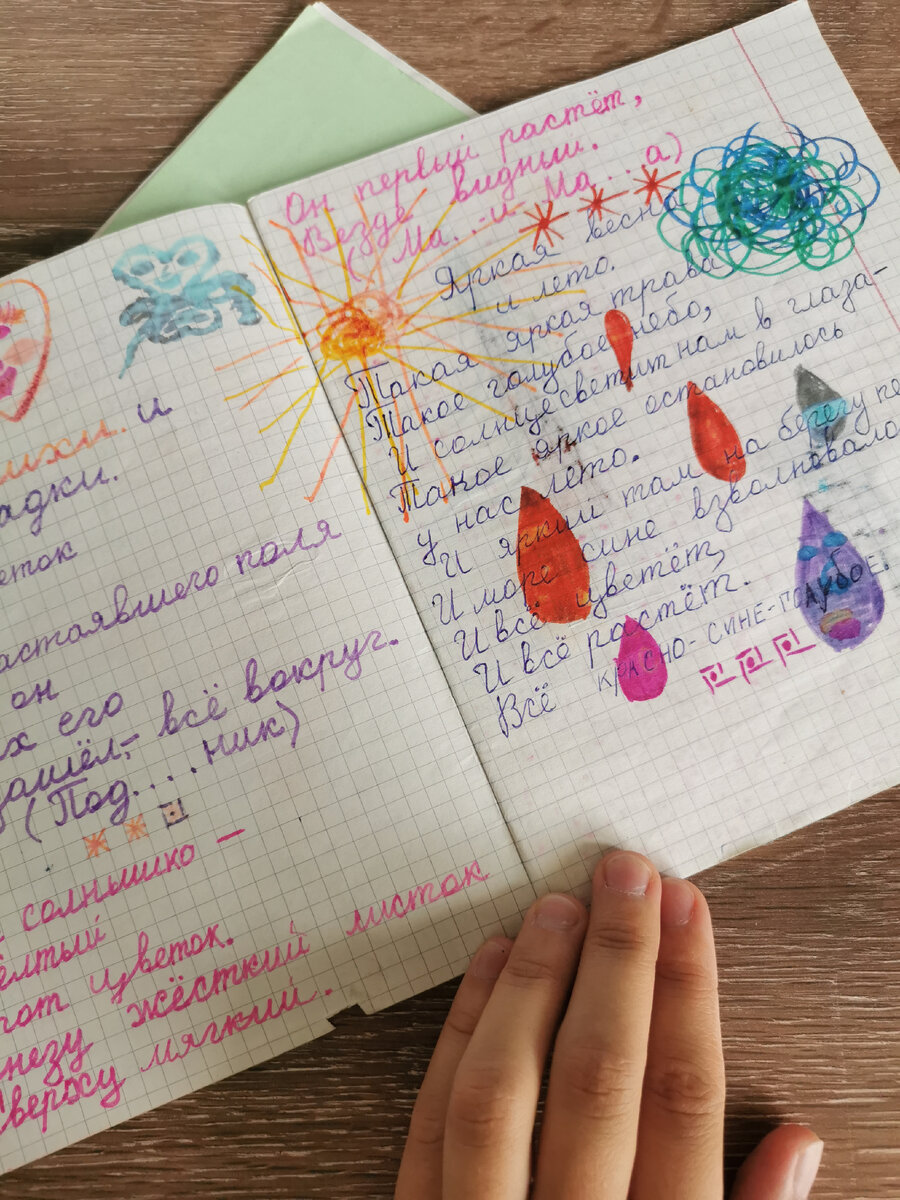 и
цветок
настоявшего поля
он
его
всё вокруг.
(Под....ник)
солнышко —
жёлтый
цветок.
жёсткий листок
Сверху мягкий.
Он первый растёт,
Везде видный.
(Ма..-и-Ма...а)
Яркая весна
и лето.
Такая яркая трава
Такое голубое небо,
И солнце светит нам в глаза-
Такое яркое остановилось
у нас лето.
И яркий там на берегу пе
И море сине взволновало
И всё цветёт,
И всё растёт.
Всё КРАСНО-СИНЕ-ГОЛУБОЕ.